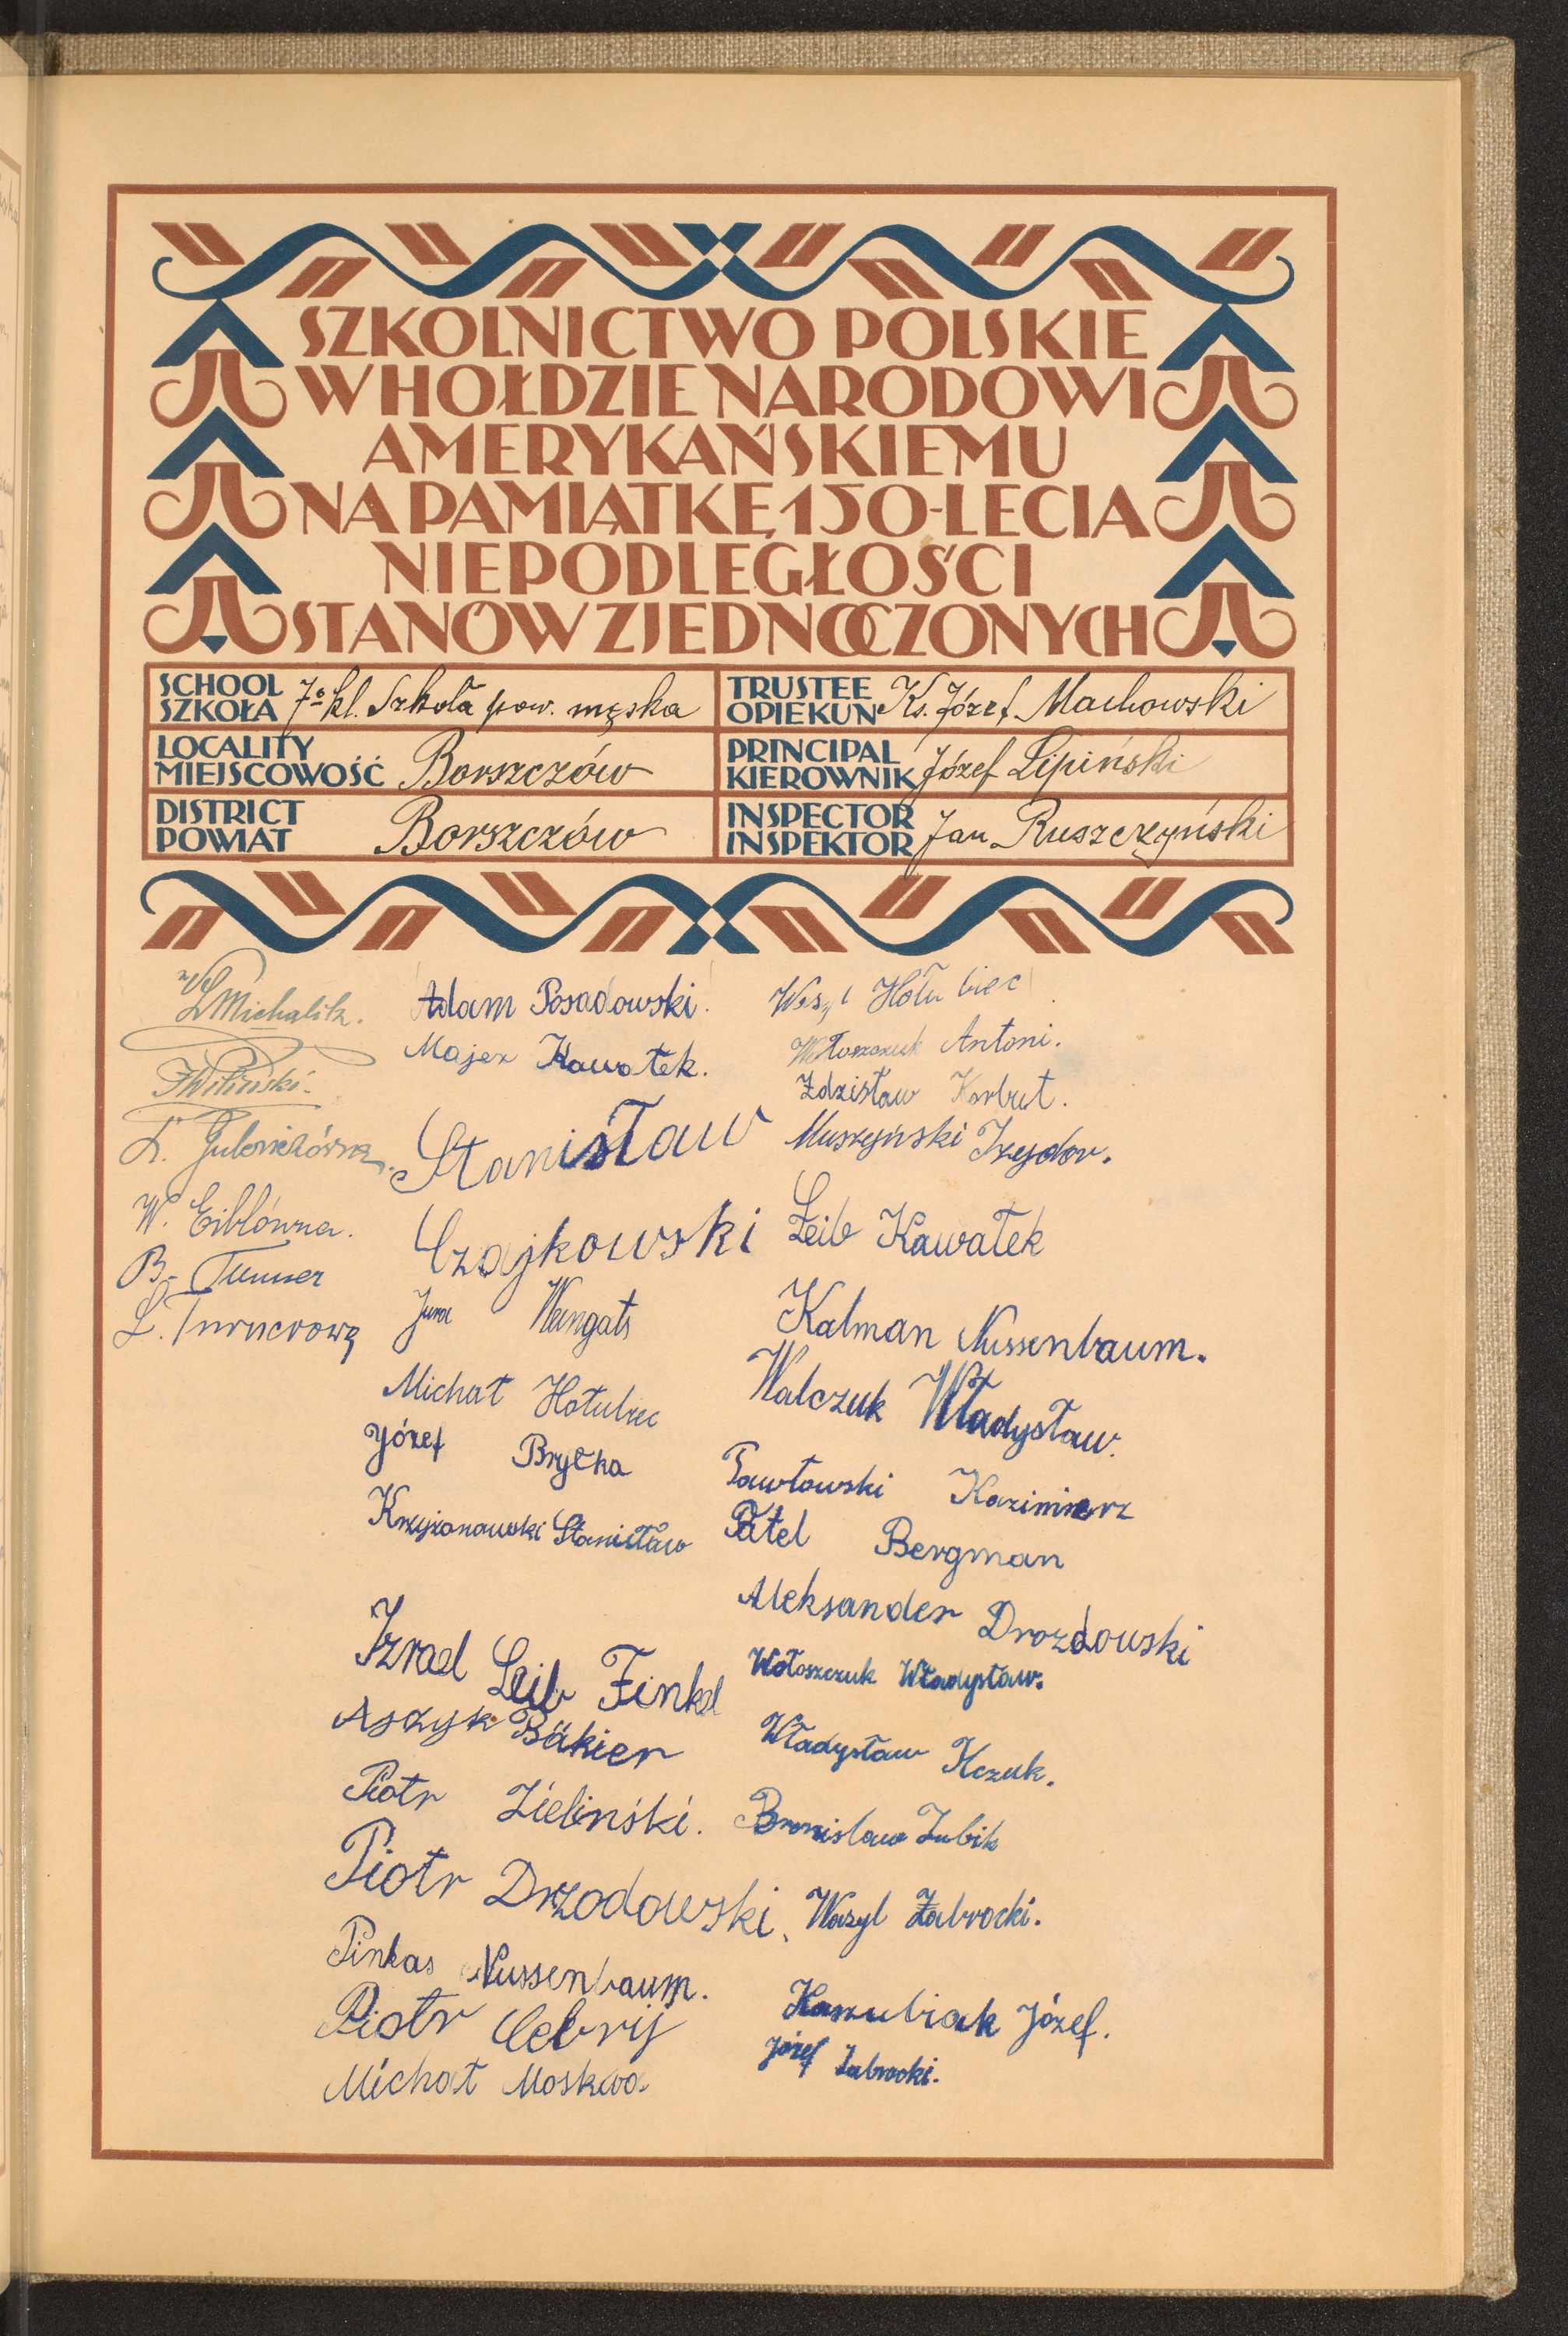 SZKOLNICTWO POLSKIE
W HOŁDZIE NARODOWI
AMERYKAŃSKIEMU
NA PAMIĄTKĘ 150-LECIA
NIEPODLEGŁOŚCI
STANÓW ZJEDNOCZONYCH
SCHOOL
SZKOŁA 7-kl. Szkoła pow. męska
LOCALITY
MIEJSCOWOŚĆ Borszczów
DISTRICT
POWIAT Borszczów
TRUSTEE
OPIEKUN Ks. Józef Machowski
PRINCIPAL
KIEROWNIK Józef Lipiński
INSPECTOR
INSPEKTOR Jan Ruszczyński
Michalik.
W. Eiblówna.
B. Turner
L. Turnerową
Adam Posadowski.
Majer Kawałek.
Stanisław
Czajkowski
Jura Wangats
Michał Hołubiec
Józef Brytka
Krzyżanowski Stanisław
Izrael Leib Finkel
Aszyk Bäkier
Piotr Zieliński.
Piotr Drzodowski.
Pinkas Nussenbaum.
Piotr Cebrij
Michał Moskwa
Hołubiec
Wołoszczuk Antoni.
Zdzisław Korbut.
Muszyński Izydor.
Leib Kawałek
Kalman Nussenbaum.
Walczuk Władysław.
Pawłowski Kazimierz
Patel Bergman
Aleksander Drozdowski
Wołoszczuk Władysław.
Władysław Kczuk.
Bronisław Zubik
Wasyl Zabrocki.
Kaszubiak Józef.
Józef Zabrocki.